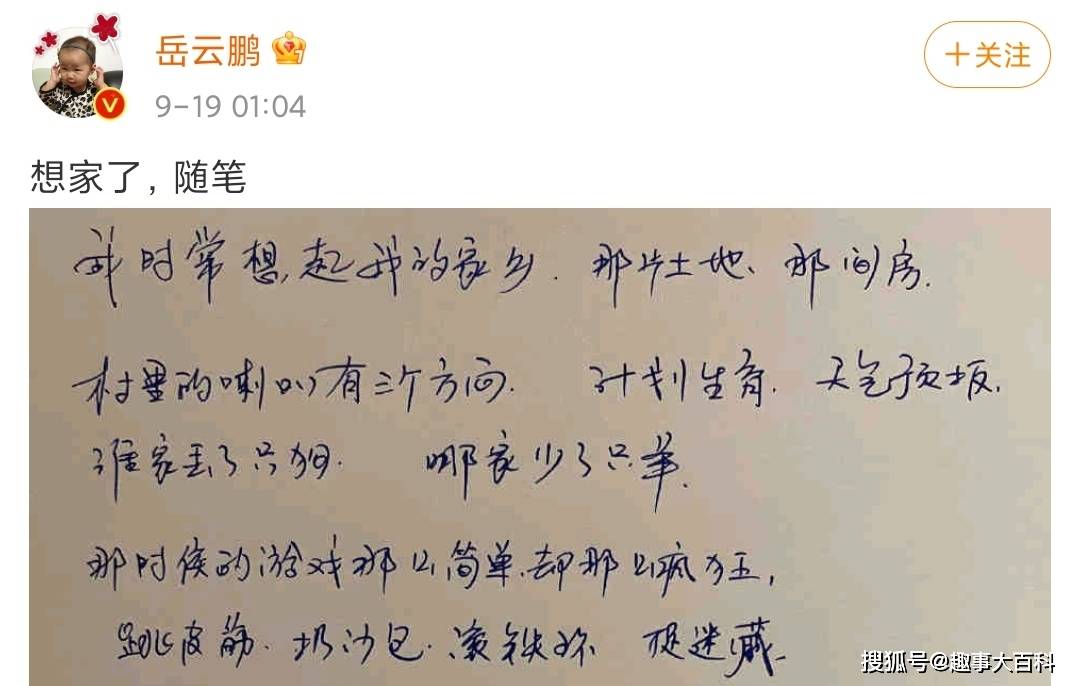 岳云鹏
+关注
9-19 01:04
想家了，随笔
我时常想起我的家乡. 那片土地、那间房.
村里的喇叭有三个方向. 计划生育. 天气预报.
谁家丢了只狗. 哪家少了只羊.
那时候的游戏那么简单.却那么疯狂,
跳皮筋. 扔沙包. 滚铁环 捉迷藏
搜狐号@趣事大百科